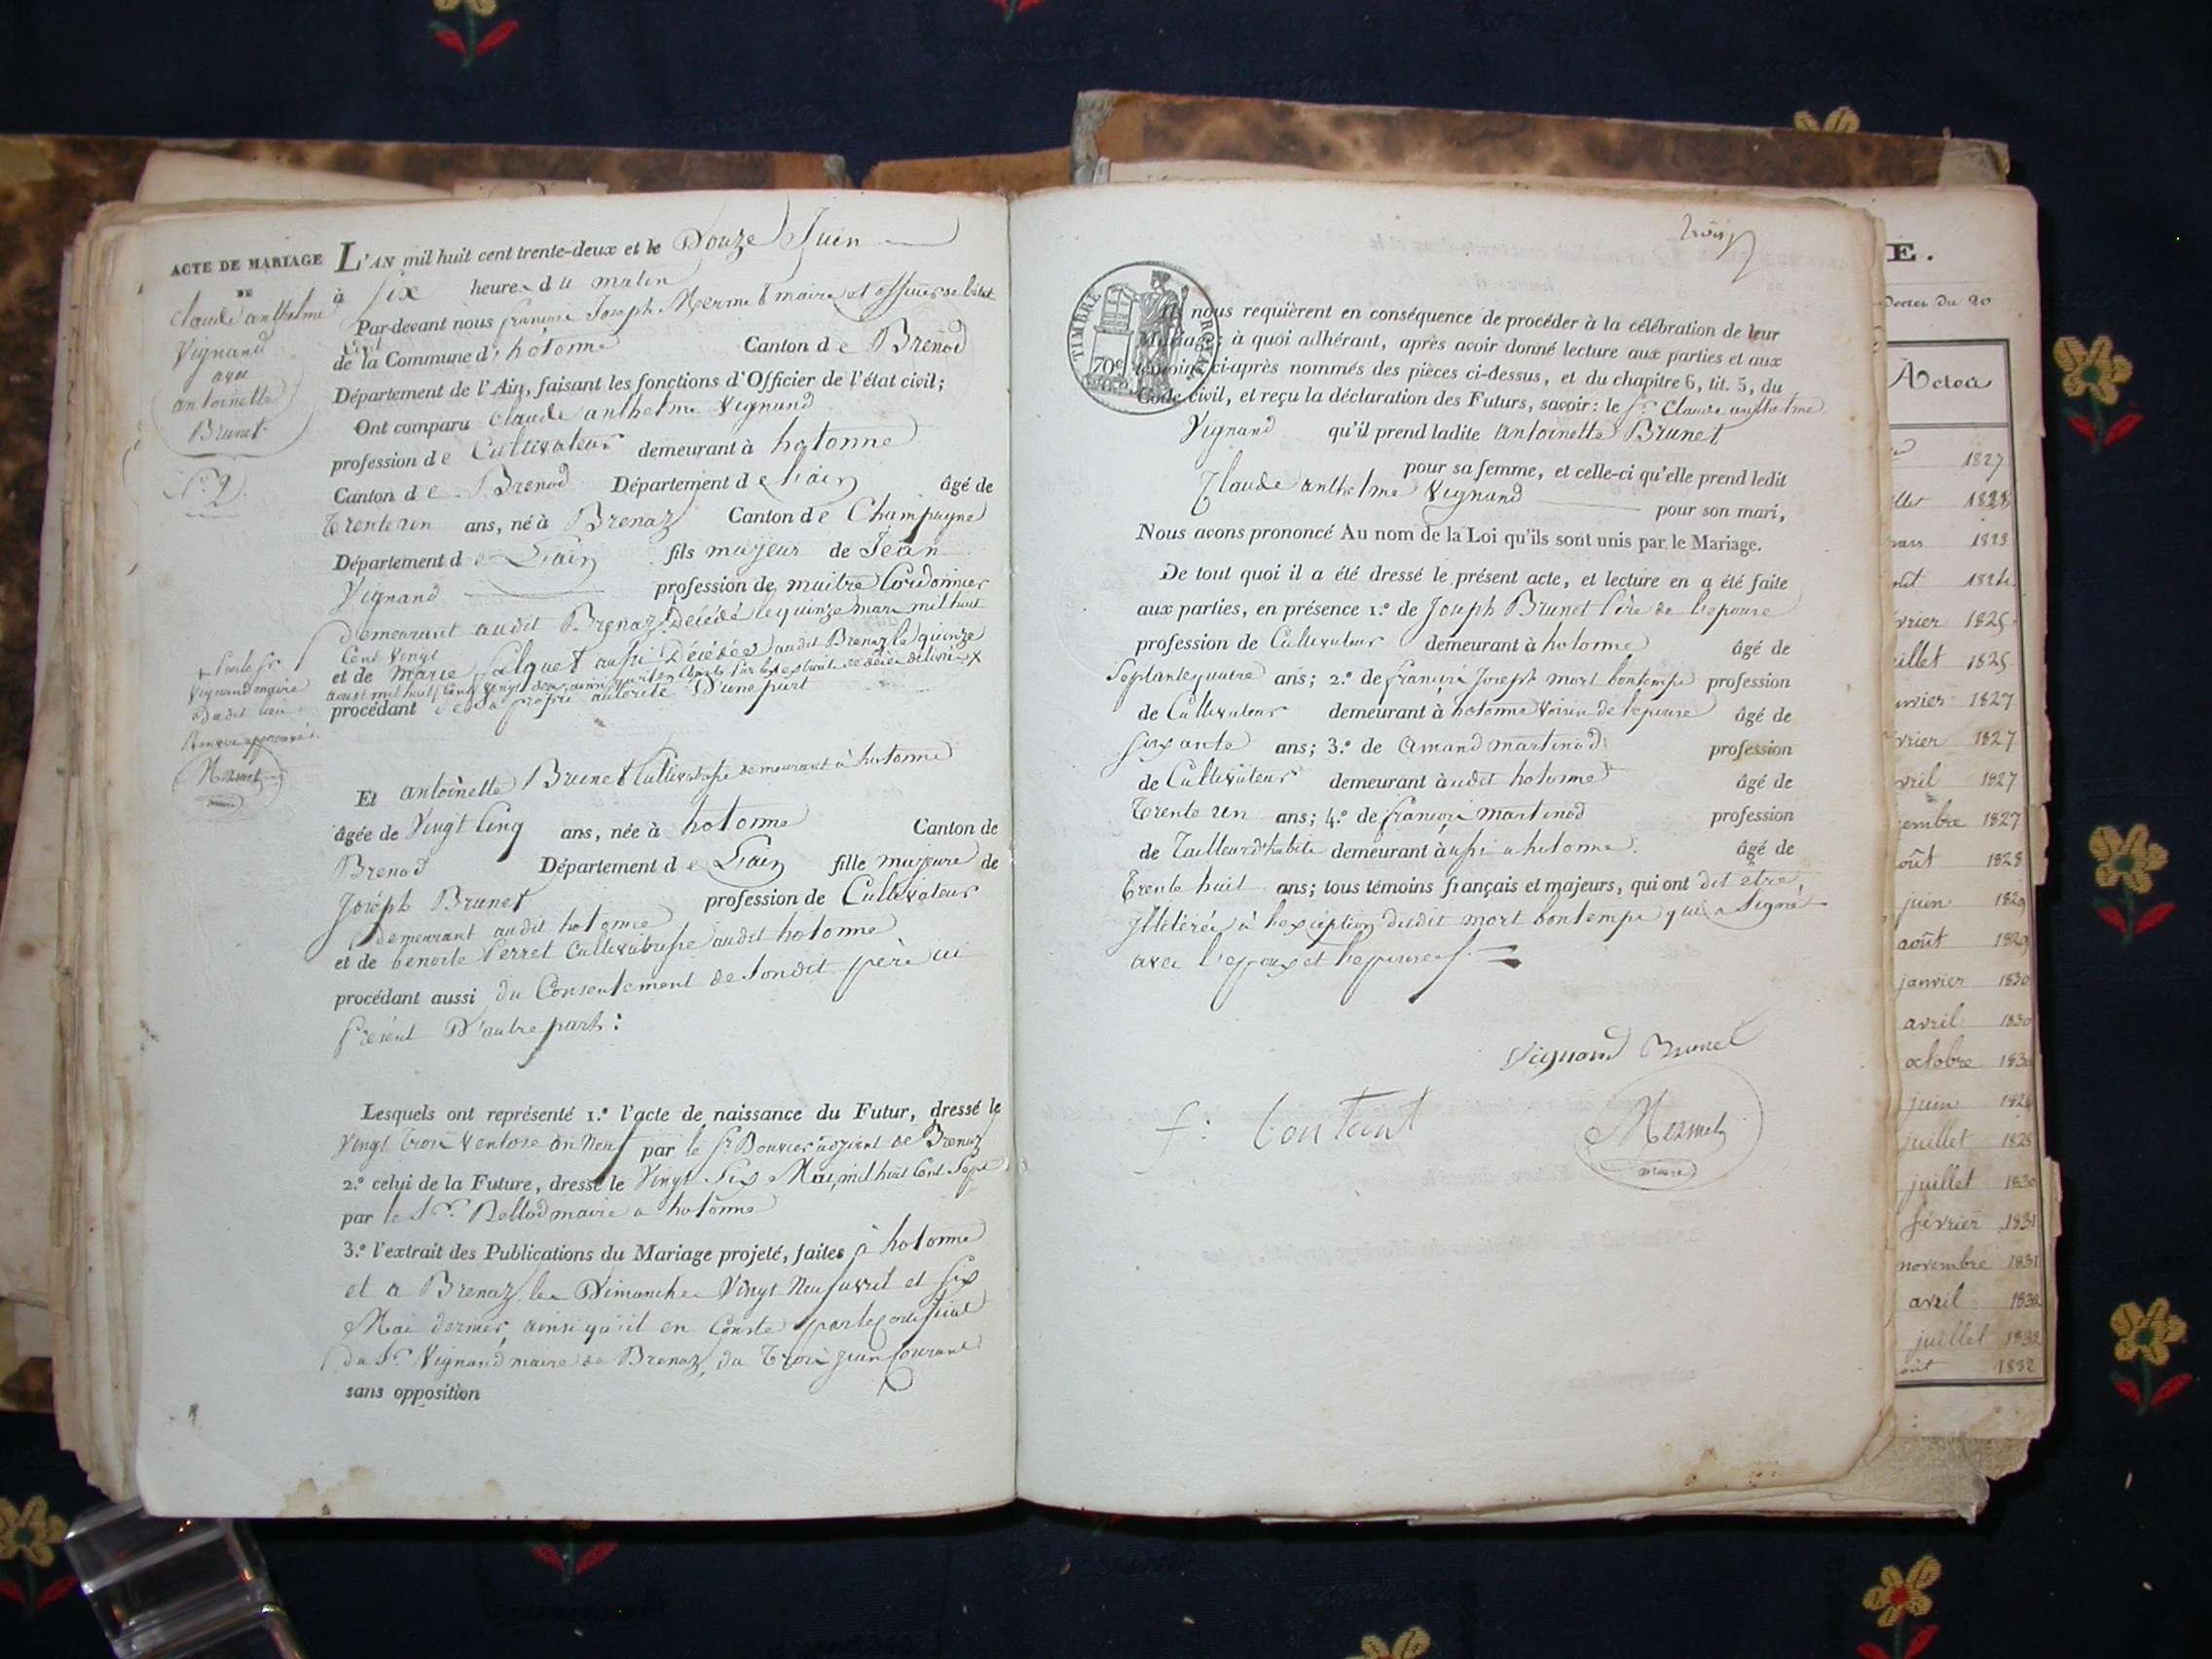 ACTE DE MARIAGE
DE
Claude anthelme
Vignand
avec
antoinette
Brunet
N.º 2
L'AN mil huit cent trente-deux et le Douze Juin
à six heures du matin
Par-devant nous françois Joseph Mermet maire et officier de l'état
Civil
de la Commune d'hotonne Canton de Brenod
Département de l'Ain, faisant les fonctions d'Officier de l'état civil;
Ont comparu Claude anthelme Vignand
profession de Cultivateur demeurant à hotonne
Canton de Brenod Département de L'ain âgé de
trente un ans, né à Brenaz Canton de Champagne
Département de L'ain fils majeur de Jean
Vignand profession de maitre Cordonnier
Demeurant audit Brenaz Décédé le quinze mars mil huit
Cent Vingt
et de Marie aussi Décédée audit Brenaz le quinze
aoust mil huit Cent Vingt deux ainsi
procédant de sa propre autorité D'une part
+ par le Sr.
Vignand maire
Dudit lieu
Renvoi approuvé
Mermet
maire
Et antoinette Brunet Cultivatrisse demeurant à hotonne
âgée de Vingt Cinq ans, née à hotonne Canton de
Brenod Département de L'ain fille majeure de
Joseph Brunet profession de Cultivateur
demeurant audit hotonne
et de benoite Perret Cultivatrisse audit hotonne
procédant aussi du Consentement de sondit père ici
présent D'autre part:
Lesquels ont représenté 1.º l'acte de naissance du Futur, dressé le
Vingt trois Ventose an Neuf par le Sr. Bouvier adjoint de Brenaz
2.º celui de la Future, dressé le Vingt Six Mai, mil huit Cent Sept
par le Sr. Bellod maire a hotonne
3.º l'extrait des Publications du Mariage projeté, faites à hotonne
et a Brenaz, les Dimanches Vingt Neuf avril et Six
Mai dernier, ainsi qu'il en Conste par le Certificat
du Sr. Vignand maire de Brenaz, du trois juin Courant
sans opposition
trois
TIMBRE ROYAL
70c
Ils nous requièrent en conséquence de procéder à la célébration de leur
Mariage; à quoi adhérant, après avoir donné lecture aux parties et aux
témoins ci-après nommés des pièces ci-dessus, et du chapitre 6, tit. 5, du
Code civil, et reçu la déclaration des Futurs, savoir: le Sr. Claude anthelme
Vignand qu'il prend ladite antoinette Brunet
pour sa femme, et celle-ci qu'elle prend ledit
Claude anthelme Vignand pour son mari,
Nous avons prononcé Au nom de la Loi qu'ils sont unis par le Mariage.
De tout quoi il a été dressé le présent acte, et lecture en a été faite
aux parties, en présence 1.º de Joseph Brunet Père de l'epouse
profession de Cultivateur demeurant à hotonne âgé de
Septante quatre ans; 2.º de françois Joseph mort bontemps profession
de Cultivateur demeurant à hotonne Voisin de l'epouse âgé de
soixante ans; 3.º de Amand martinod profession
de Cultivateur demeurant à udit hotonne âgé de
trente un ans; 4.º de françois martinod profession
de tailleur d'habits demeurant à ussi a hotonne. âgé de
trente huit ans; tous témoins français et majeurs, qui ont dit etre
Illitérés à l'exception dudit mort bontemps qui a Signé
avec l'epoux et l'epouse
Vignand Brunet
Mermet
maire
E.
Actes
1827
1828
1825
juillet 1825
janvier 1827
février 1827
avril 1827
1827
août 1828
juin 1829
août 1829
janvier 1830
avril 1830
octobre 1830
juin
juillet 1828
juillet 1830
février 1831
novembre 1831
avril 1832
juillet 1832
août 1832